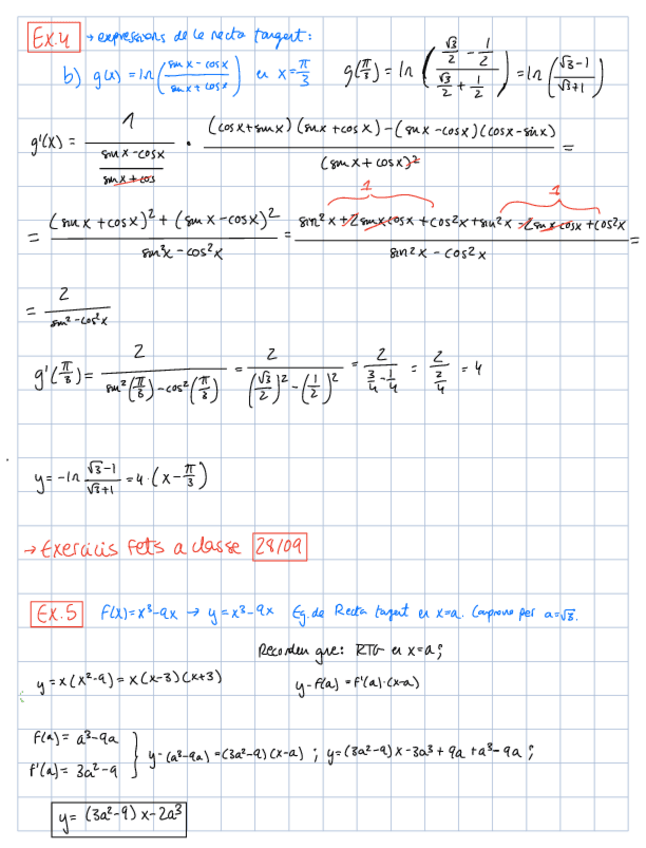 Ex.4 → expressions de le recta tangent:
b) g(x) = ln((sin x - cos x)/(sin x + cos x)) en x = π/3   g(π/3) = ln((√3/2 - 1/2)/(√3/2 + 1/2)) = ln((√3-1)/(√3+1))
g'(x) = 1/((sin x - cos x)/(sin x + cos)) · ((cos x + sin x)(sin x + cos x) - (sin x - cos x)(cos x - sin x))/(sin x + cos x)² =
1 1
= ((sin x + cos x)² + (sin x - cos x)²)/(sin²x - cos²x) = (sin²x + 2 sin x cos x + cos²x + sin²x - 2 sin x cos x + cos²x)/(sin²x - cos²x) =
= 2/(sin² - cos²x)
g'(π/3) = 2/(sin²(π/3) - cos²(π/3)) = 2/((√3/2)² - (1/2)²) = 2/(3/4 - 1/4) = 2/(2/4) = 4
y = -ln (√3-1)/(√3+1) = 4·(x - π/3)
→ Exercicis fets a classe 28/09
Ex.5 f(x) = x³-9x → y = x³-9x Eq. de Recta tangent en x=a. Comprova per a=√3.
Recorden que: RTG en x=a;
y = x(x²-9) = x(x-3)(x+3)   y - f(a) = f'(a)·(x-a)
f(a) = a³-9a
f'(a) = 3a²-9 } y-(a³-9a) = (3a²-9)(x-a) ; y = (3a²-9)x - 3a³ + 9a + a³ - 9a ;
y = (3a²-9)x - 2a³